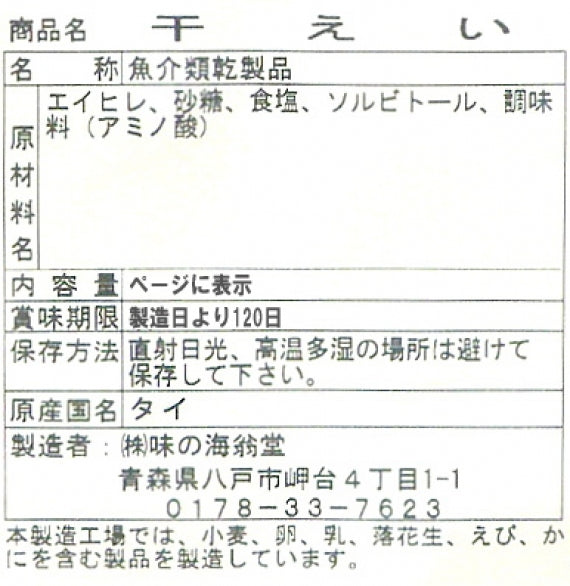 商品名 干えい
名称 魚介類乾製品
原材料名 エイヒレ、砂糖、食塩、ソルビトール、調味
料（アミノ酸）
内容量 ページに表示
賞味期限 製造日より120日
保存方法 直射日光、高温多湿の場所は避けて
保存して下さい。
原産国名 タイ
製造者：㈱味の海翁堂
青森県八戸市岬台４丁目1-1
０１７８－３３－７６２３
本製造工場では、小麦、卵、乳、落花生、えび、か
にを含む製品を製造しています。